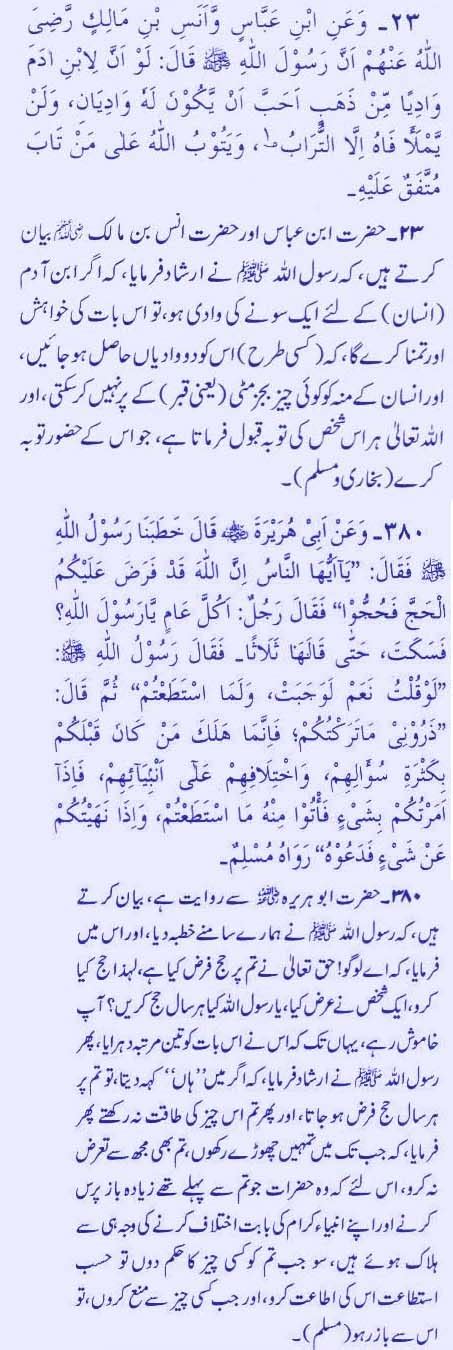 ۲۳۔ وَعَنِ ابْنِ عَبَّاسٍ وَّاَنَسِ بْنِ مَالِكٍ رَّضِىَ
اللّٰهُ عَنْهُمْ اَنَّ رَسُوْلَ اللّٰهِ ﷺ قَالَ: لَوْ اَنَّ لِابْنِ اٰدَمَ
وَادِيًا مِّنْ ذَهَبٍ اَحَبَّ اَنْ يَّكُوْنَ لَهٗ وَادِيَانِ، وَلَنْ
يَّمْلَأَ فَاهُ اِلَّا التُّرَابُ ؕ، وَيَتُوْبُ اللّٰهُ عَلٰى مَنْ تَابَ
مُتَّفَقٌ عَلَيْهِ۔
۲۳۔ حضرت ابن عباس اور حضرت انس بن مالک ؓ بیان
کرتے ہیں، کہ رسول اللہ ﷺ نے ارشاد فرمایا، کہ اگر ابن آدم
(انسان) کے لئے ایک سونے کی وادی ہو، تو اس بات کی خواہش
اور تمنا کرے گا، کہ (کسی طرح) اس کو دو وادیاں حاصل ہو جائیں،
اور انسان کے منہ کو کوئی چیز بجز مٹی (یعنی قبر) کے پر نہیں کر سکتی، اور
اللہ تعالیٰ ہر اس شخص کی توبہ قبول فرماتا ہے، جو اس کے حضور توبہ
کرے (بخاری و مسلم)۔
۳۸۰۔ وَعَنْ اَبِىْ هُرَيْرَةَ ؓ قَالَ خَطَبَنَا رَسُوْلُ اللّٰهِ
ﷺ فَقَالَ: ”يَآاَيُّهَا النَّاسُ اِنَّ اللّٰهَ قَدْ فَرَضَ عَلَيْكُمُ
الْحَجَّ فَحُجُّوْا“ فَقَالَ رَجُلٌ: اَكُلَّ عَامٍ يَّارَسُوْلَ اللّٰهِ؟
فَسَكَتَ، حَتّٰى قَالَهَا ثَلَاثًا۔ فَقَالَ رَسُوْلُ اللّٰهِ ﷺ:
”لَوْقُلْتُ نَعَمْ لَوَجَبَتْ، وَلَمَا اسْتَطَعْتُمْ“ ثُمَّ قَالَ:
”ذَرُوْنِىْ مَاتَرَكْتُكُمْ؛ فَاِنَّمَا هَلَكَ مَنْ كَانَ قَبْلَكُمْ
بِكَثْرَةِ سُؤَالِهِمْ، وَاخْتِلَافِهِمْ عَلٰى اَنْبِيَآئِهِمْ، فَاِذَآ
اَمَرْتُكُمْ بِشَىْءٍ فَأْتُوْا مِنْهُ مَا اسْتَطَعْتُمْ، وَاِذَا نَهَيْتُكُمْ
عَنْ شَىْءٍ فَدَعُوْهُ“ رَوَاهُ مُسْلِمٌ۔
۳۸۰۔ حضرت ابو ہریرہ ؓ سے روایت ہے، بیان کرتے
ہیں، کہ رسول اللہ ﷺ نے ہمارے سامنے خطبہ دیا، اور اس میں
فرمایا، کہ اے لوگو! حق تعالیٰ نے تم پر حج فرض کیا ہے، لہٰذا حج کیا
کرو، ایک شخص نے عرض کیا، یا رسول اللہ کیا ہر سال حج کریں؟ آپ
خاموش رہے، یہاں تک کہ اس نے اس بات کو تین مرتبہ دہرایا، پھر
رسول اللہ ﷺ نے ارشاد فرمایا، کہ اگر میں ”ہاں“ کہہ دیتا، تو تم پر
ہر سال حج فرض ہو جاتا، اور پھر تم اس چیز کی طاقت نہ رکھتے پھر
فرمایا، کہ جب تک میں تمہیں چھوڑے رکھوں، تم بھی مجھ سے تعرض
نہ کرو، اس لئے کہ وہ حضرات جو تم سے پہلے تھے زیادہ باز پرس
کرنے اور اپنے انبیاء کرام کی بابت اختلاف کرنے کی وجہ ہی سے
ہلاک ہوئے ہیں، سو جب تم کو کسی چیز کا حکم دوں تو حسب
استطاعت اس کی اطاعت کرو، اور جب کسی چیز سے منع کروں، تو
اس سے باز رہو (مسلم)۔